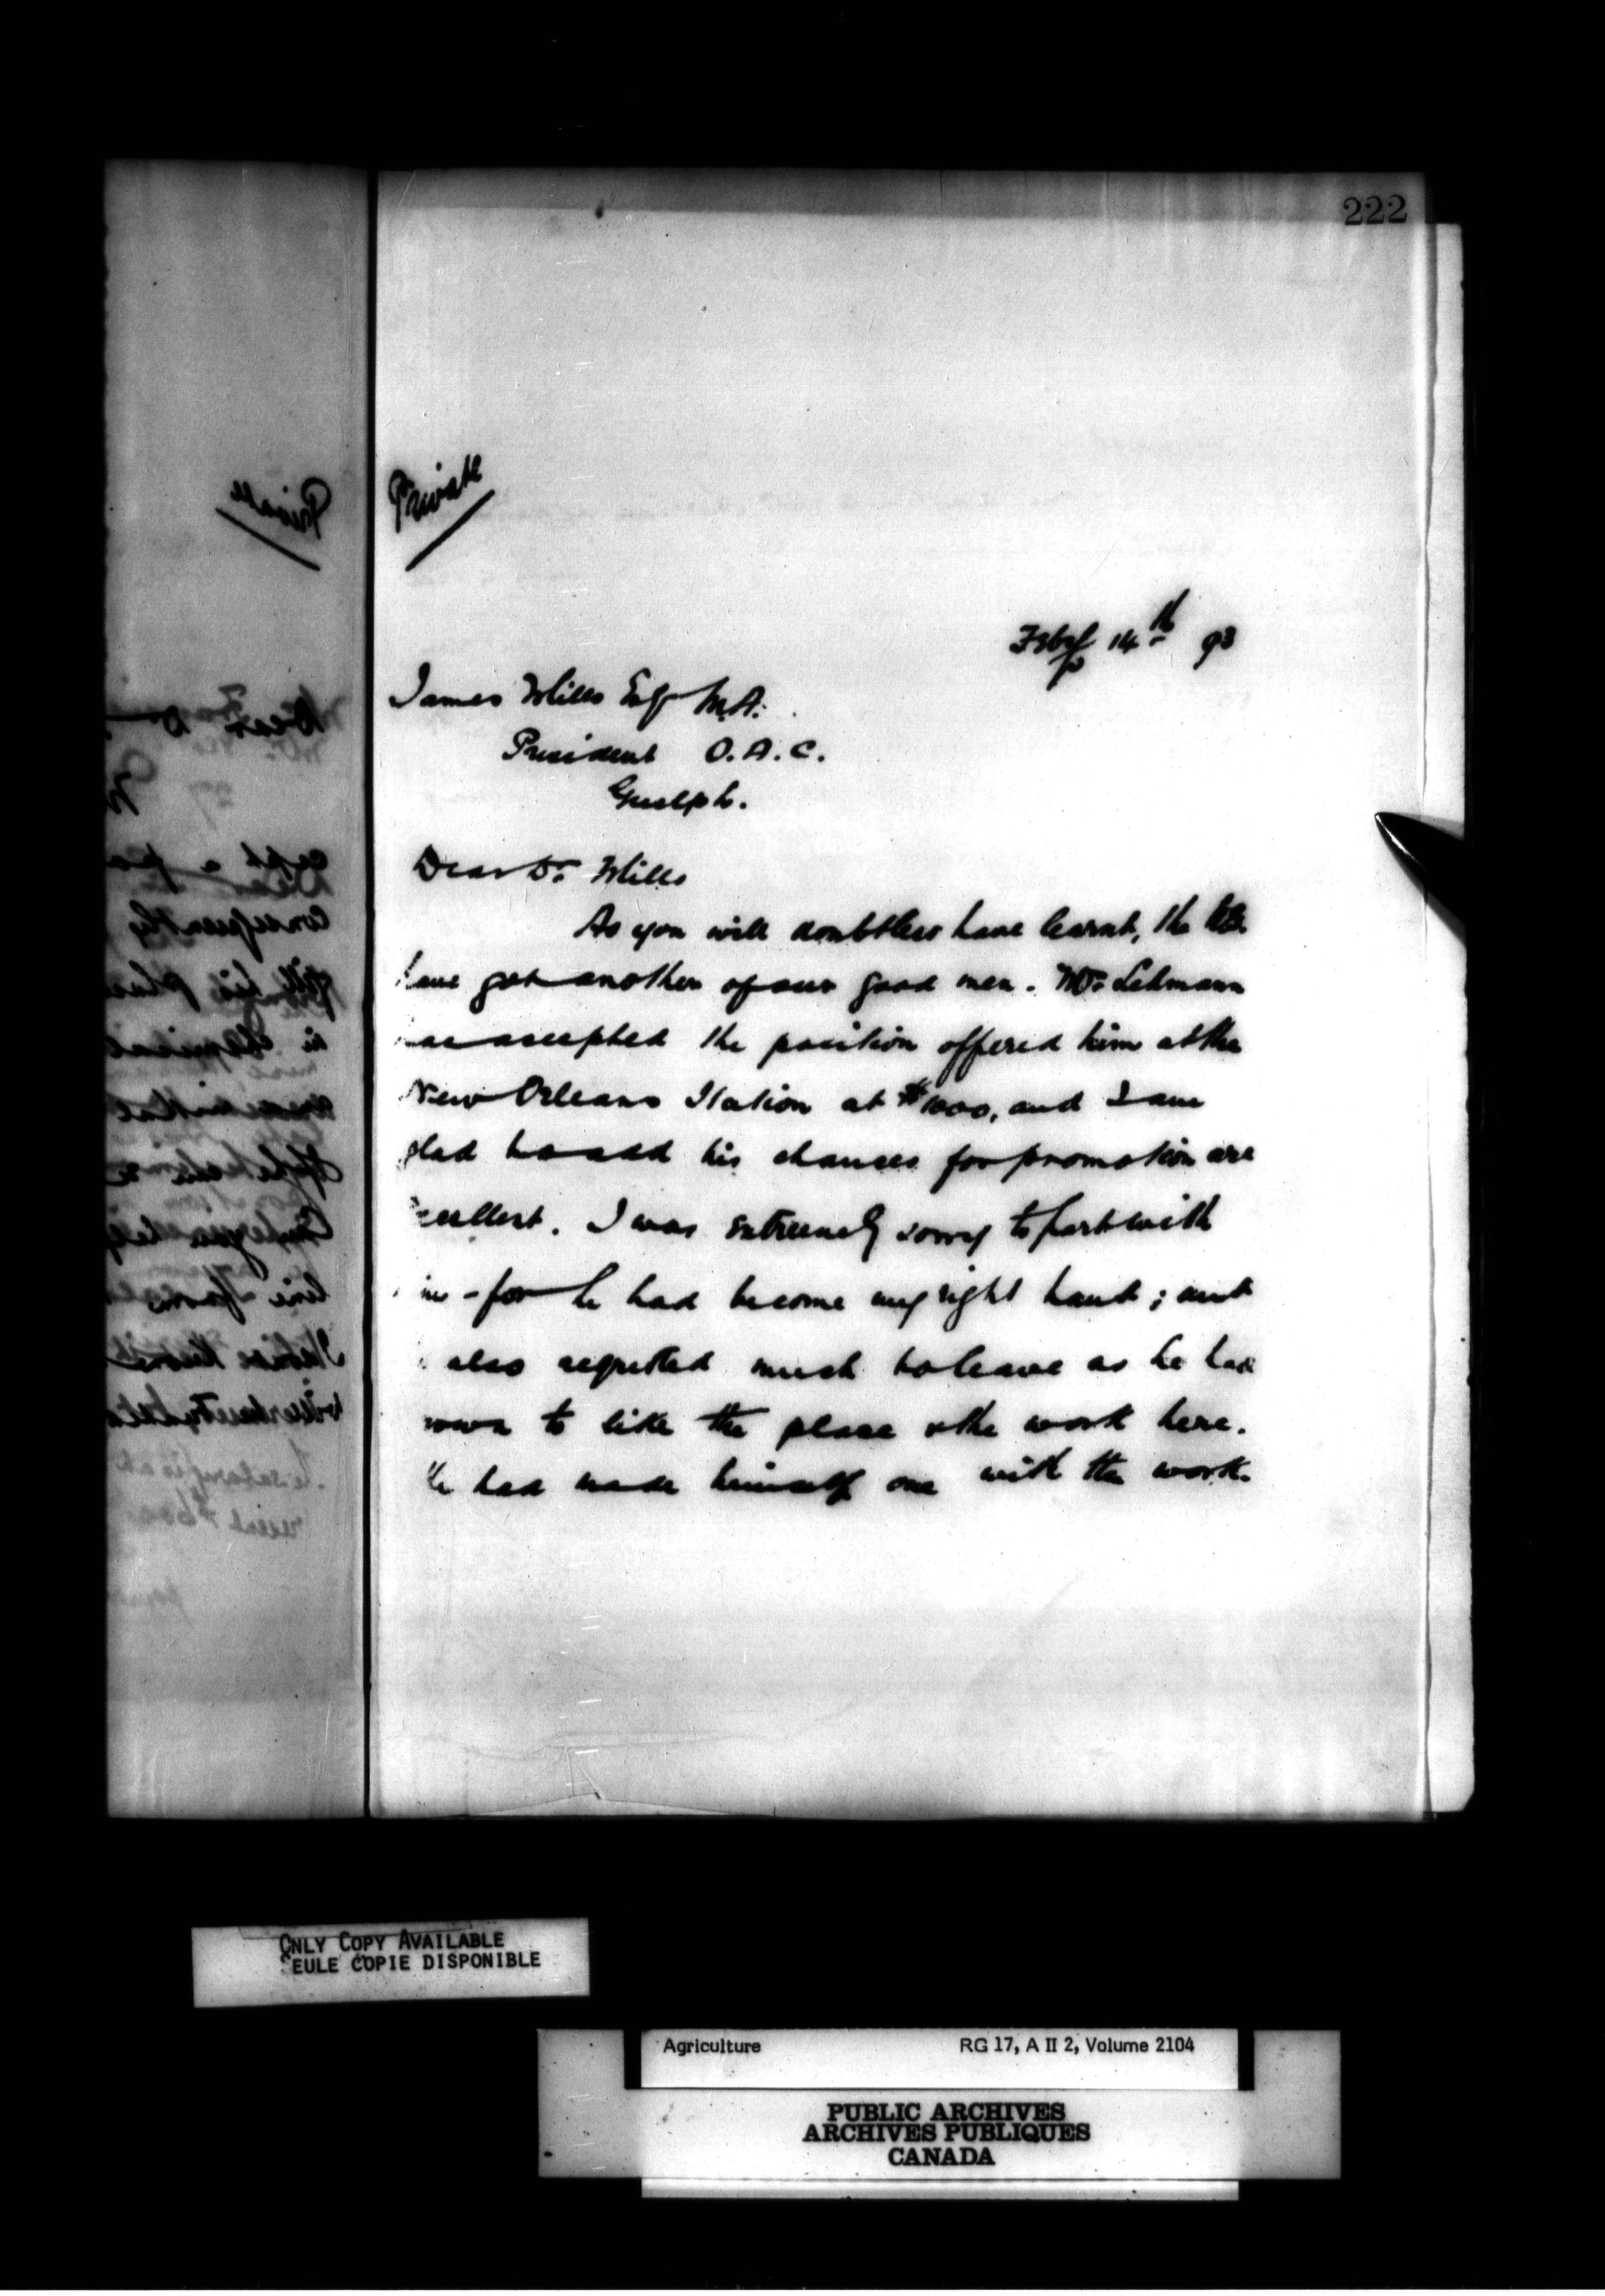 222
Private
Feby 14th 93
James Mills Esq M.A.
President O.A.C.
Guelph.
Dear Dr. Mills
As you will doubtless have learnt, the
have got another of our good men. Mr. Lehmann
has accepted the position offered him at the
New Orleans Station at $1000, and I am
glad to add his chances for promotion are
excellent. I was extremely sorry to part with
him - for he had become my right hand; and
also regretted much to leave as he had
grown to like the place & the work here.
He had made himself one with the work.
ONLY COPY AVAILABLE
SEULE COPIE DISPONIBLE
Agriculture RG 17, A II 2, Volume 2104
PUBLIC ARCHIVES
ARCHIVES PUBLIQUES
CANADA